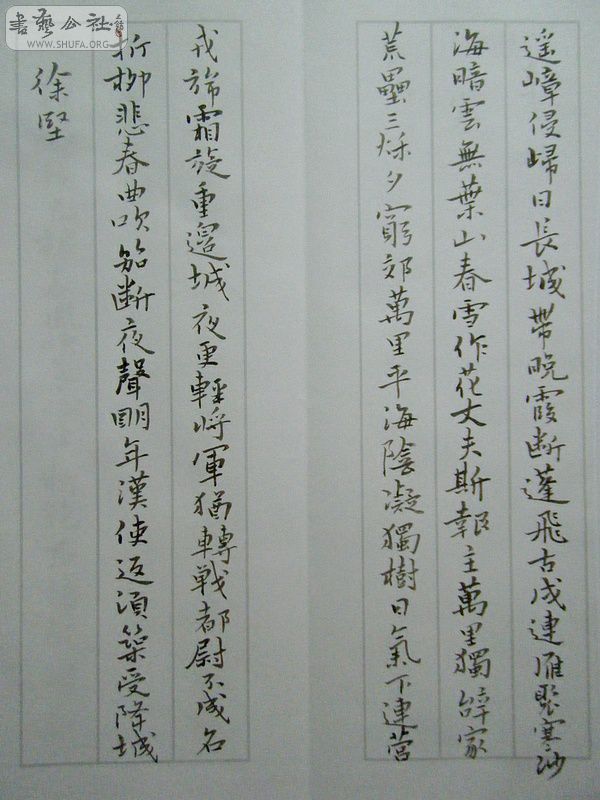 遥嶂侵歸日長城帶晚霞断蓬飛古戍連雁聚寒沙
海暗雲無葉山春雪作花丈夫斯報主萬里獨辭家
荒壘三秋夕窮郊萬里平海陰凝獨樹日氣下連营
戎旆霜旋重邊城夜更輕將軍猶轉戦都尉不成名
折柳悲春曲吹笳断夜聲明年漢使返須築受降城
徐堅
書藝公社
WWW.SHUFA.ORG